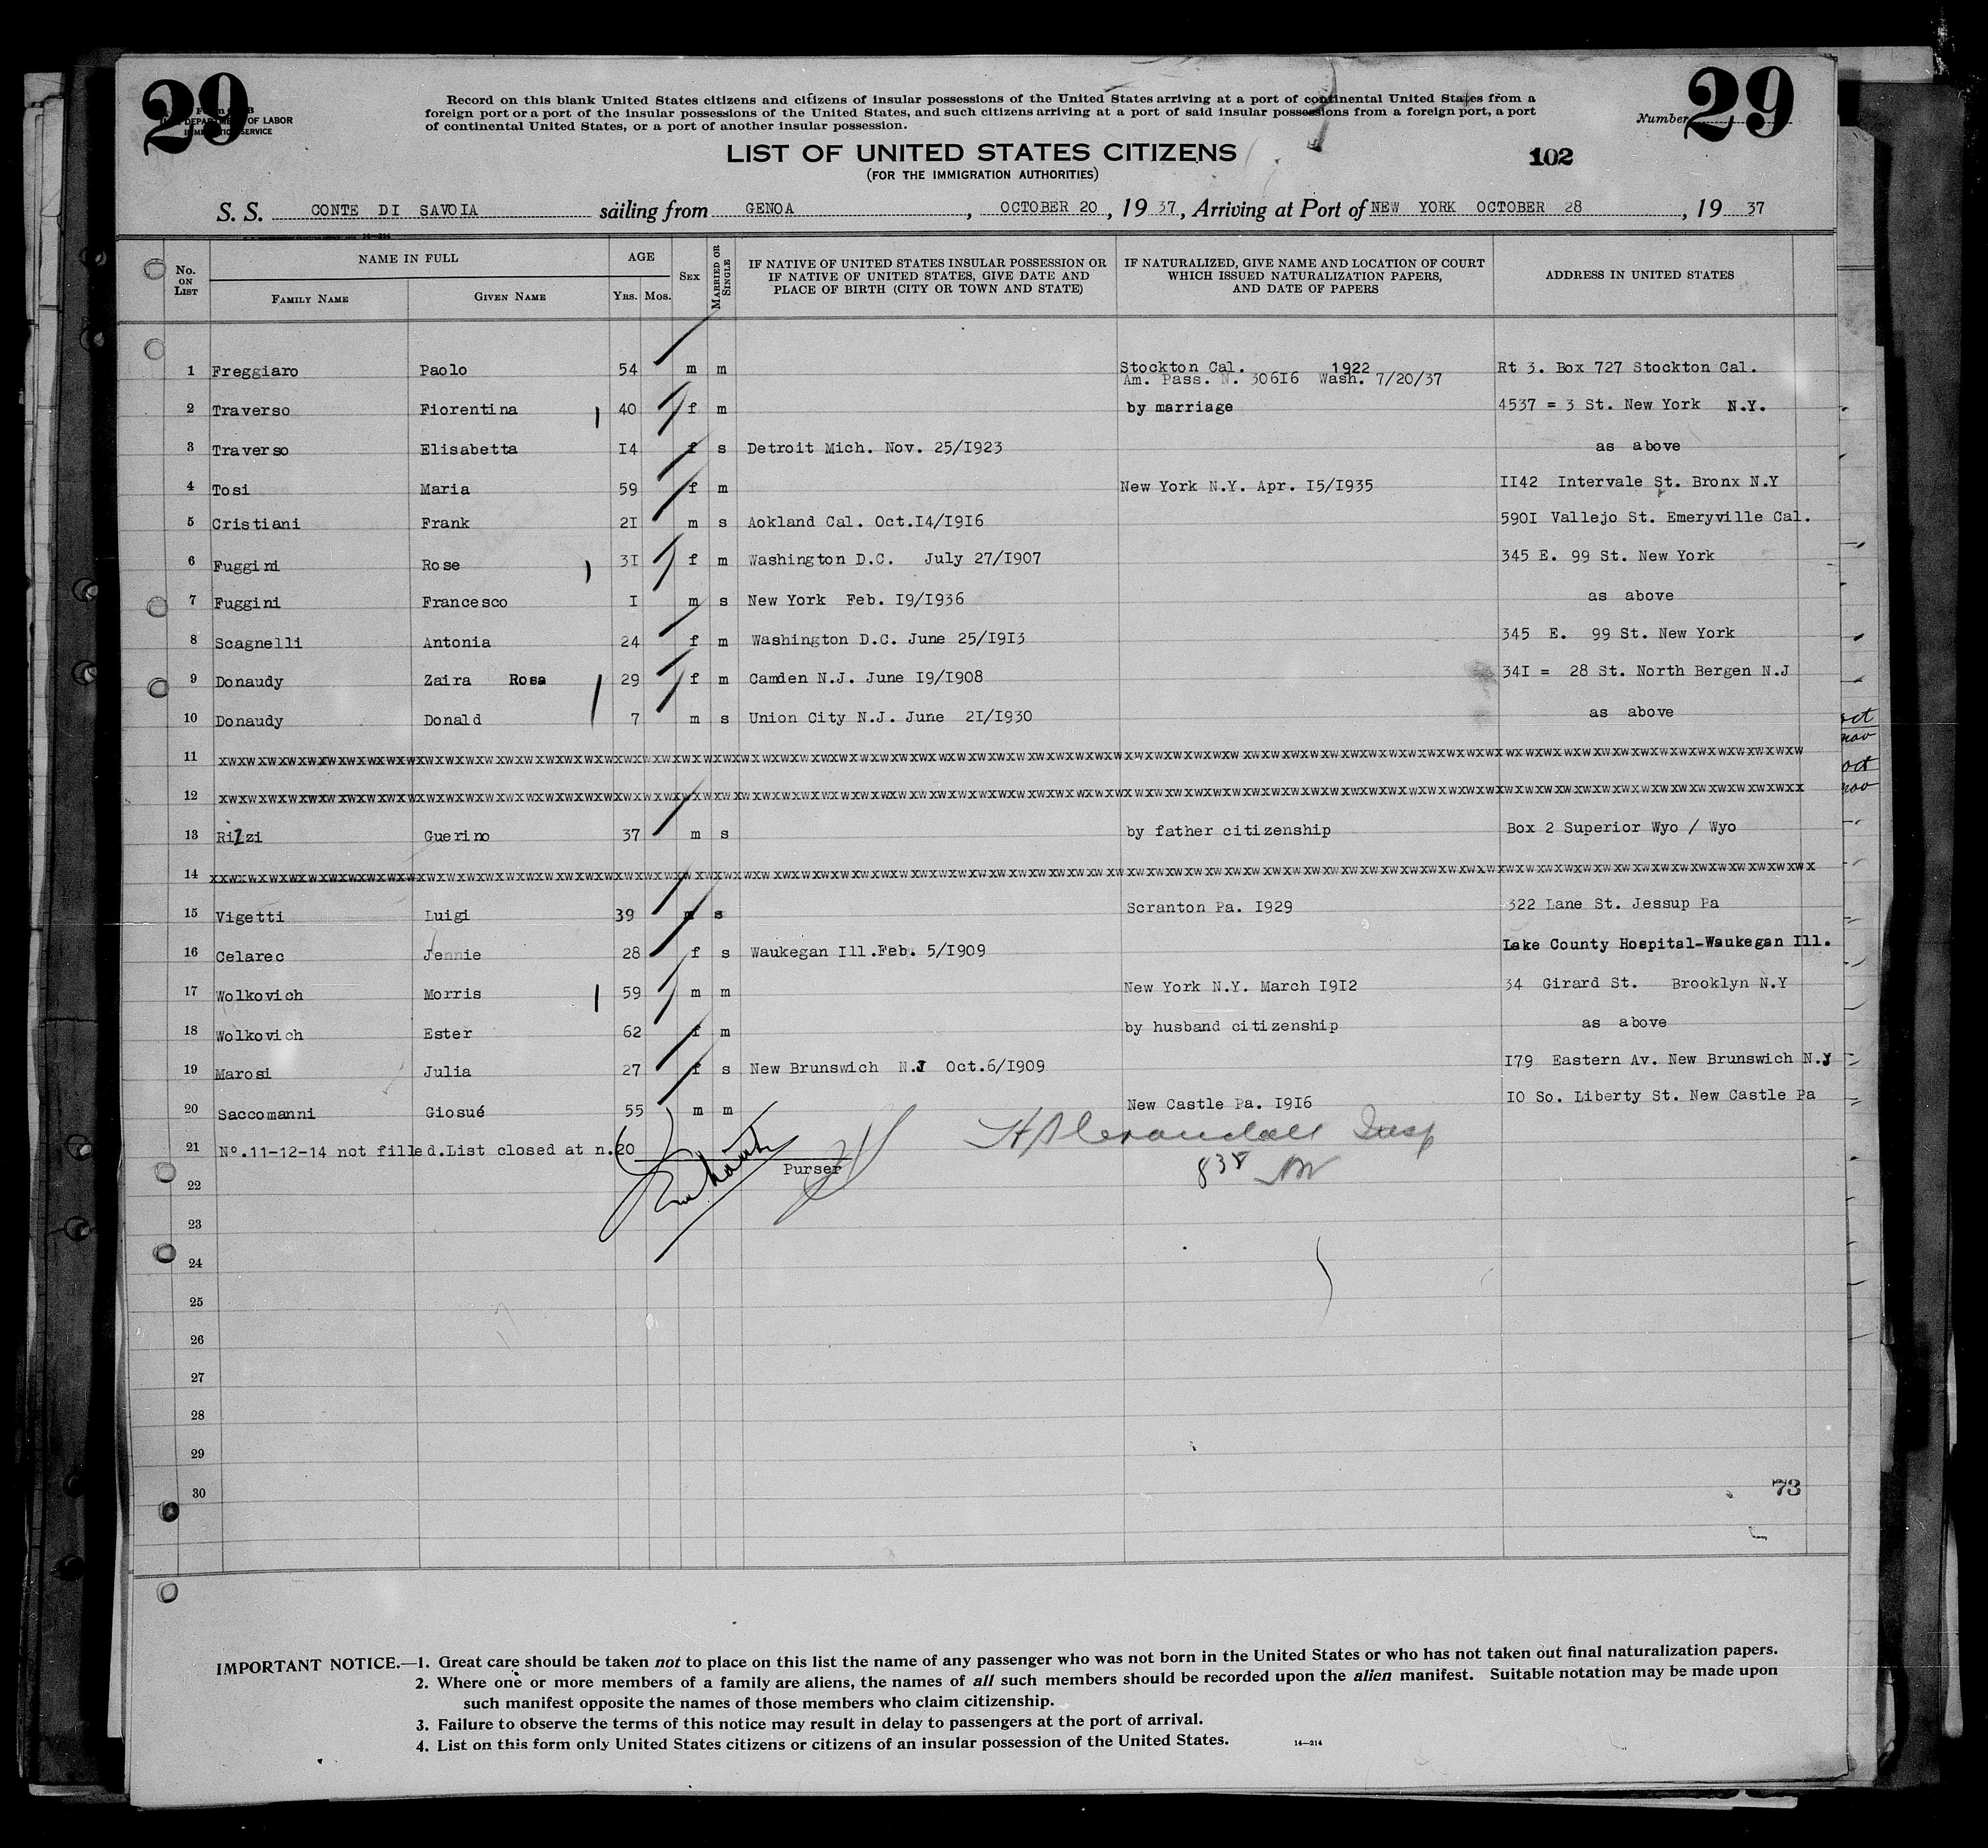 29 29
Form 630 B
U.S. DEPARTMENT OF LABOR
IMMIGRATION SERVICE
Record on this blank United States citizens and citizens of insular possessions of the United States arriving at a port of continental United States from a
foreign port or a port of the insular possessions of the United States, and such citizens arriving at a port of said insular possessions from a foreign port, a port
of continental United States, or a port of another insular possession.
Number
LIST OF UNITED STATES CITIZENS 102
(FOR THE IMMIGRATION AUTHORITIES)
S. S. CONTE DI SAVOIA sailing from GENOA, OCTOBER 20, 1937, Arriving at Port of NEW YORK OCTOBER 28, 1937
14-214
No. ON LIST NAME IN FULL FAMILY NAME GIVEN NAME AGE YRS. MOS. SEX MARRIED OR SINGLE IF NATIVE OF UNITED STATES INSULAR POSSESSION OR IF NATIVE OF UNITED STATES, GIVE DATE AND PLACE OF BIRTH (CITY OR TOWN AND STATE) IF NATURALIZED, GIVE NAME AND LOCATION OF COURT WHICH ISSUED NATURALIZATION PAPERS, AND DATE OF PAPERS ADDRESS IN UNITED STATES
1 Freggiaro Paolo 54 m m Stockton Cal. 1922 Rt 3. Box 727 Stockton Cal.
Am. Pass. N. 306I6 Wash. 7/20/37
2 Traverso Fiorentina 40 f m by marriage 4537 = 3 St. New York N.Y.
3 Traverso Elisabetta I4 f s Detroit Mich. Nov. 25/I923 as above
4 Tosi Maria 59 f m New York N.Y. Apr. I5/I935 II42 Intervale St. Bronx N.Y
5 Cristiani Frank 2I m s Aokland Cal. Oct.I4/I9I6 590I Vallejo St. Emeryville Cal.
6 Fuggini Rose 3I f m Washington D.C. July 27/I907 345 E. 99 St. New York
7 Fuggini Francesco I m s New York Feb. I9/I936 as above
8 Scagnelli Antonia 24 f m Washington D.C. June 25/I9I3 345 E. 99 St. New York
9 Donaudy Zaira Rosa 29 f m Camden N.J. June I9/I908 34I = 28 St. North Bergen N.J
10 Donaudy Donald 7 m s Union City N.J. June 2I/I930 as above
11
12
13 Rizzi Guerino 37 m s by father citizenship Box 2 Superior Wyo / Wyo
14
15 Vigetti Luigi 39 m s Scranton Pa. I929 322 Lane St. Jessup Pa
16 Celarec Jennie 28 f s Waukegan Ill.Feb. 5/I909 Lake County Hospital-Waukegan Ill.
17 Wolkovich Morris 59 m m New York N.Y. March I9I2 34 Girard St. Brooklyn N.Y
18 Wolkovich Ester 62 f m by husband citizenship as above
19 Marosi Julia 27 f s New Brunswich N.J Oct.6/I909 I79 Eastern Av. New Brunswich N.J
20 Saccomanni Giosué 55 m m New Castle Pa. I9I6 IO So. Liberty St. New Castle Pa
21 Nº.11-12-14 not filled.List closed at n.20
Purser
Insp
838
22
23
24
25
26
27
28
29
30
73
oct
nov
oct
nov
IMPORTANT NOTICE.—1. Great care should be taken not to place on this list the name of any passenger who was not born in the United States or who has not taken out final naturalization papers.
2. Where one or more members of a family are aliens, the names of all such members should be recorded upon the alien manifest. Suitable notation may be made upon
such manifest opposite the names of those members who claim citizenship.
3. Failure to observe the terms of this notice may result in delay to passengers at the port of arrival.
4. List on this form only United States citizens or citizens of an insular possession of the United States. 14—214